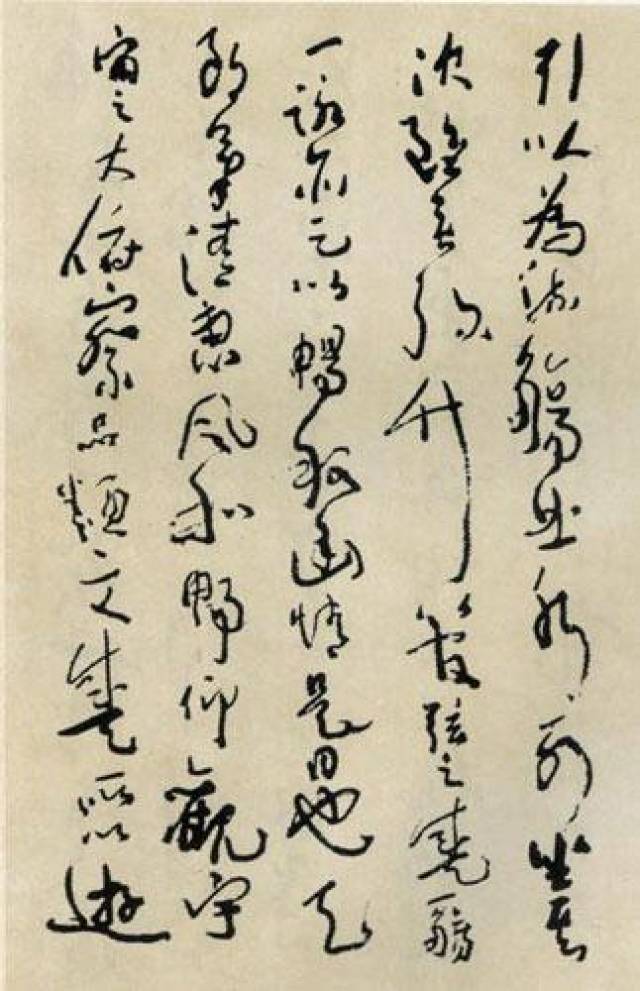 引以為流觴曲水列坐其
次雖無絲竹管弦之盛一觴
一詠亦足以暢敘幽情是日也天
朗氣清惠風和暢仰觀宇
宙之大俯察品類之盛所以遊